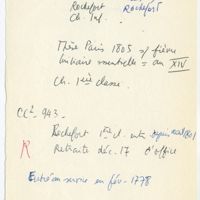 Rochefort Rochefort
Ch. Inf.
Thèse Paris 1805 s/ fièvre
bilioaire rémittente = an XIV
Ch. 1ière classe.
CC² 943.
Rochefort 1ère cl. ent.
R Retraite déc. 17 d'office
Entré au service en fév. 1778